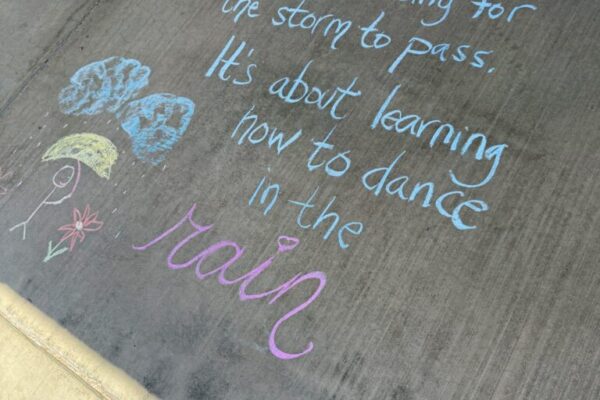 for
the storm to pass.
It's about learning
how to dance
in the
rain